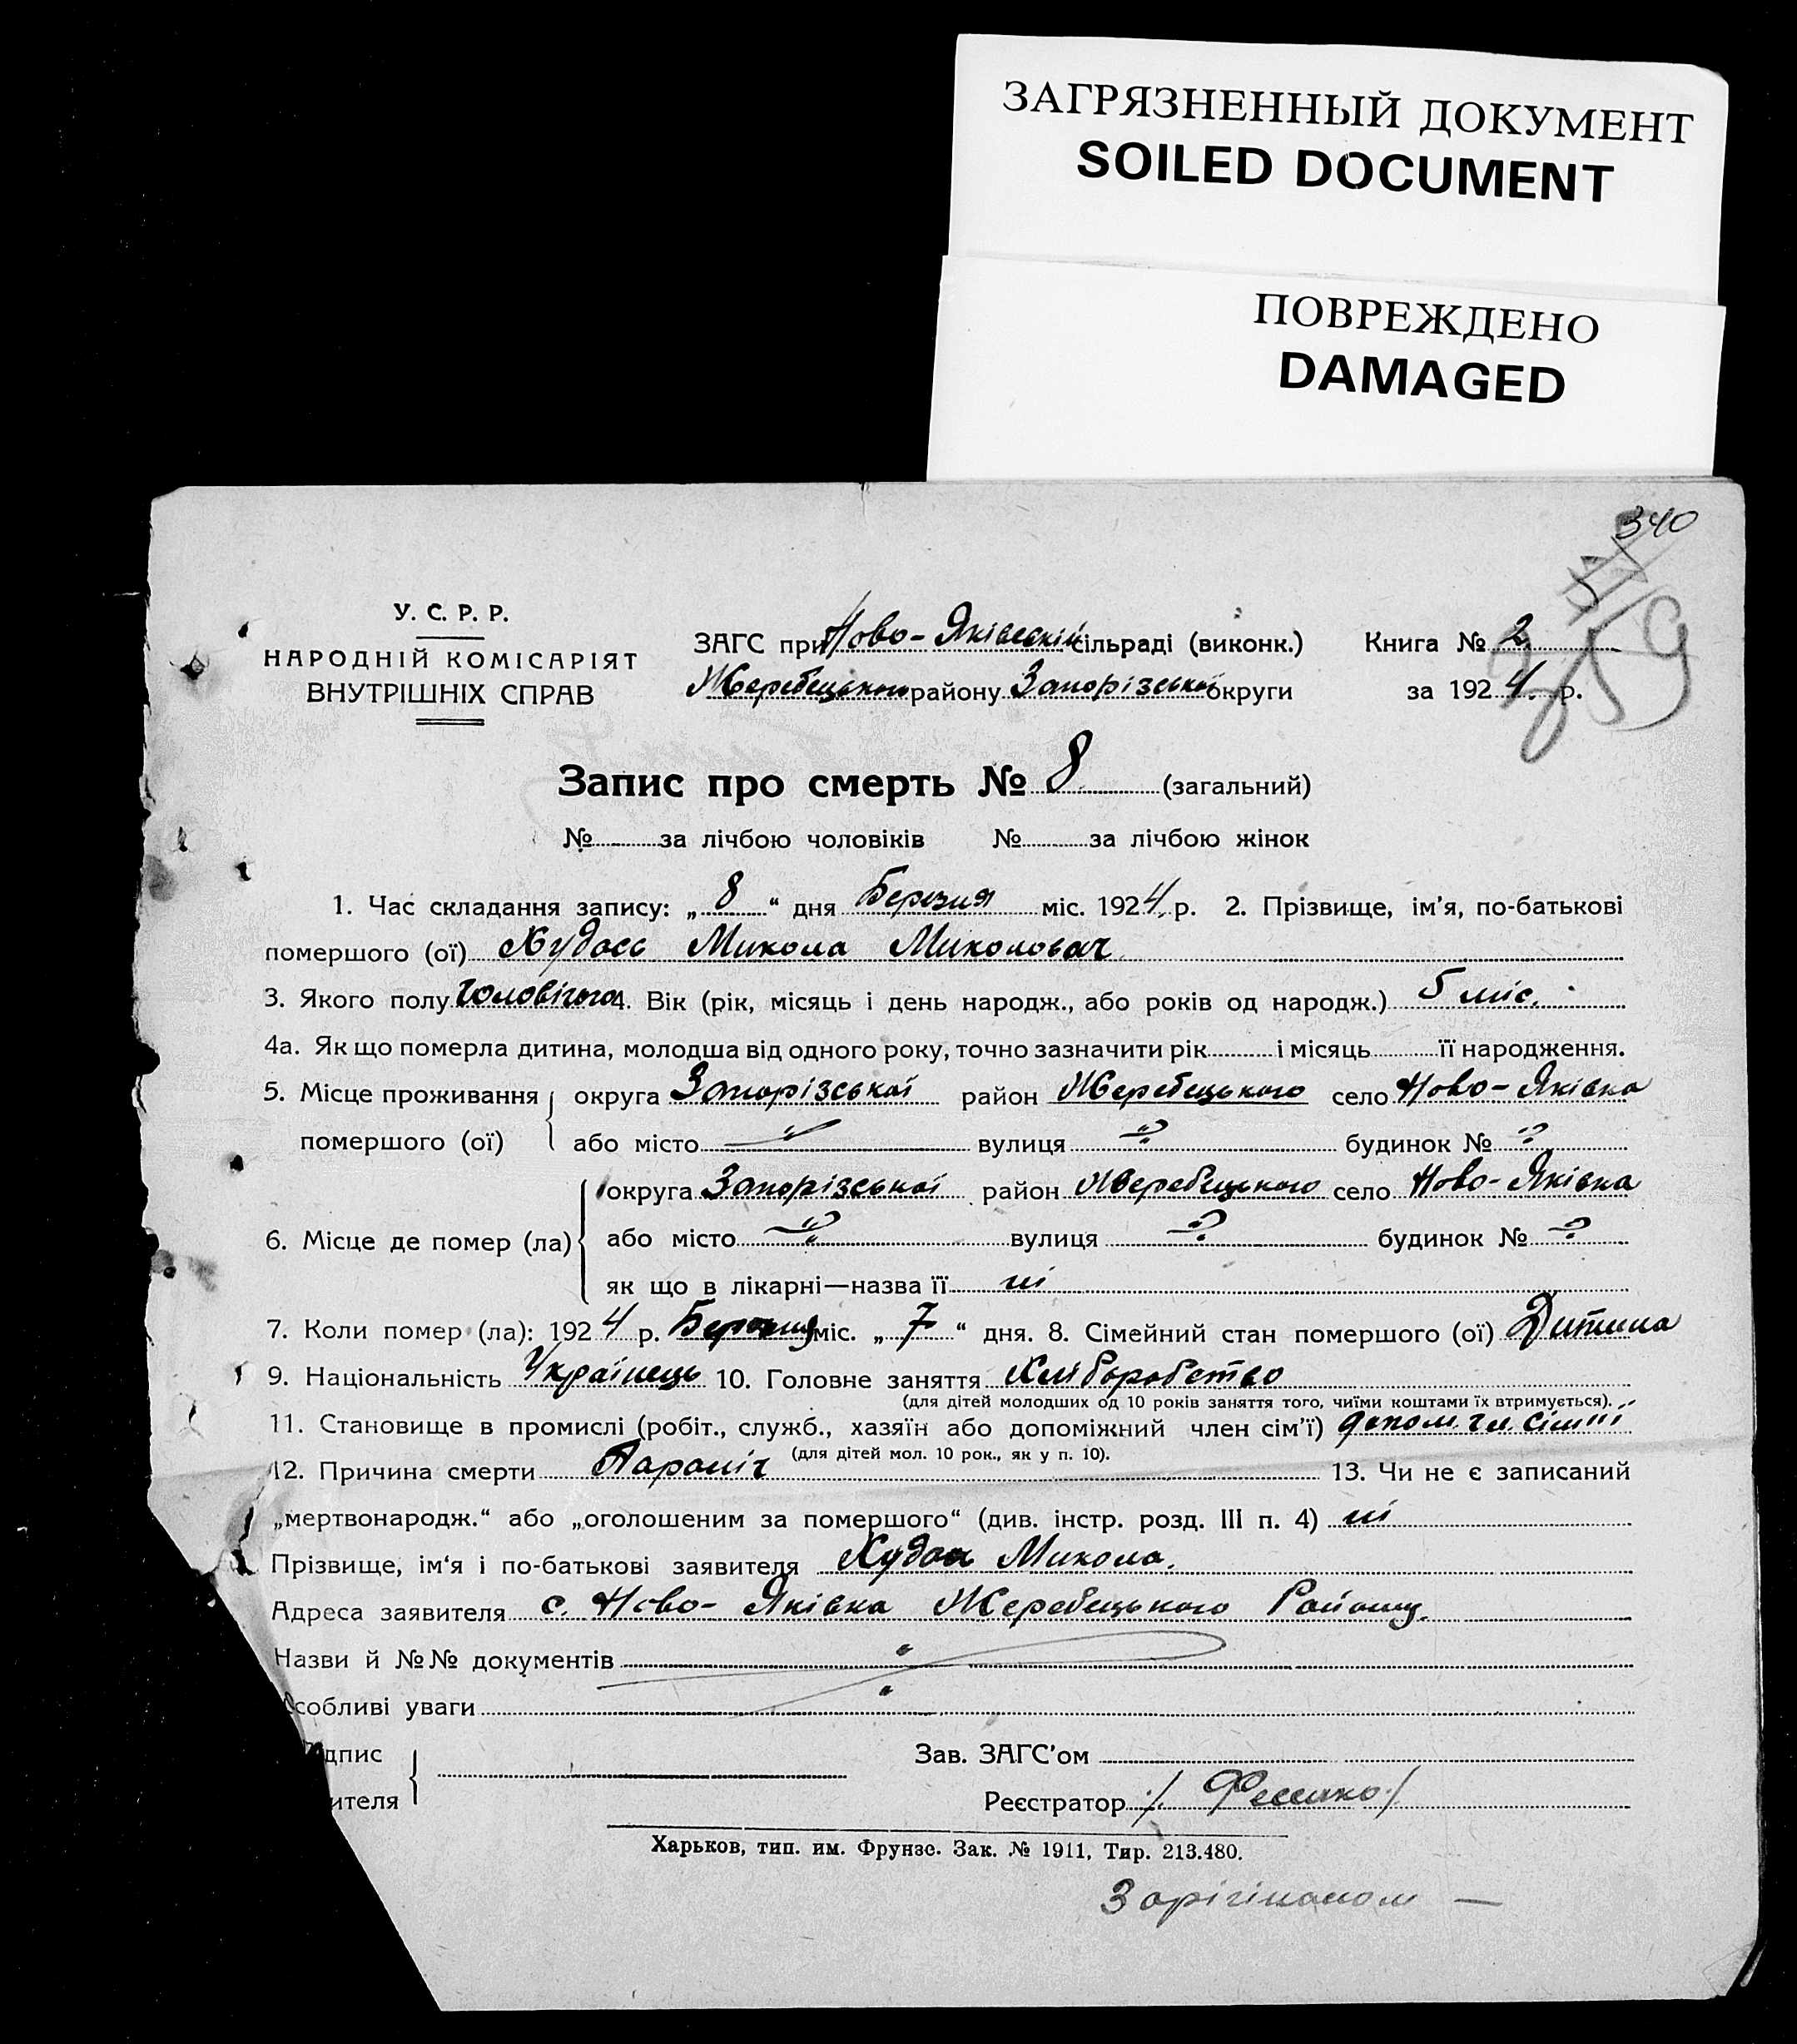 ЗАГРЯЗНЕННЫЙ ДОКУМЕНТ
SOILED DOCUMENT
ПОВРЕЖДЕНО
DAMAGED
340
259
У. С. Р. Р.
НАРОДНІЙ КОМІСАРІЯТ
ВНУТРІШНІХ СПРАВ
ЗАГС при Ново-Яківській сільраді (виконк.) Книга № 2
Жеребецького району Запорізської округи за 1924 р.
Запис про смерть № 8 (загальний)
№ за лічбою чоловіків № за лічбою жінок
1. Час складання запису: „8“ дня Березня міс. 1924 р. 2. Прізвище, ім’я, по-батькові
помершого (ої) Микола Миколович
3. Якого полу чоловічого 4. Вік (рік, місяць і день народж., або років од народж.) 5 міс.
4а. Як що померла дитина, молодша від одного року, точно зазначити рік і місяць її народження.
5. Місце проживання округа Запорізської район Жеребецького село Ново-Яківка
помершого (ої) або місто вулиця будинок №
округа Запорізської район Жеребецького село Ново-Яківка
6. Місце де помер (ла) або місто вулиця будинок №
як що в лікарні—назва її ні
7. Коли помер (ла): 1924 р. Березня міс. „7“ дня. 8. Сімейний стан помершого (ої) Дитина
9. Національність Українець 10. Головне заняття Хліборобство
(для дітей молодших од 10 років заняття того, чиїми коштами їх втримується).
11. Становище в промислі (робіт., служб., хазяїн або допоміжний член сім’ї) допом. чл. сімїї
(для дітей мол. 10 рок., як у п. 10).
12. Причина смерти Параліч 13. Чи не є записаний
„мертвонародж.“ або „оголошеним за помершого“ (див. інстр. розд. III п. 4) ні
Прізвище, ім‘я і по-батькові заявителя Микола.
Адреса заявителя с. Ново-Яківка Жеребецького Району.
Назви й №№ документів
Особливі уваги
дпис
ителя
Зав. ЗАГС’ом
Реєстратор /. Фесенко /
Харьков, тип. им. Фрунзе. Зак. № 1911, Тир. 213.480.
З орігіналом —